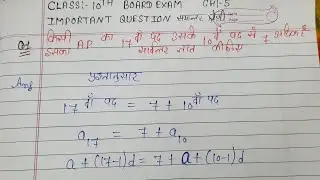 CLASS:- 10TH BOARD EXAM CH-5
IMPORTANT QUESTION समान्तर श्रेढ़ी
Q1 किसी AP का 17 वाँ पद उसके 10 वें पद से 7 अधिक है
इसका सार्वअंतर ज्ञात कीजिए
Ans प्रश्नानुसार
17 वाँ पद = 7 + 10 वाँ पद
a17 = 7 + a10
a + (17-1)d = 7 + a + (10-1)d